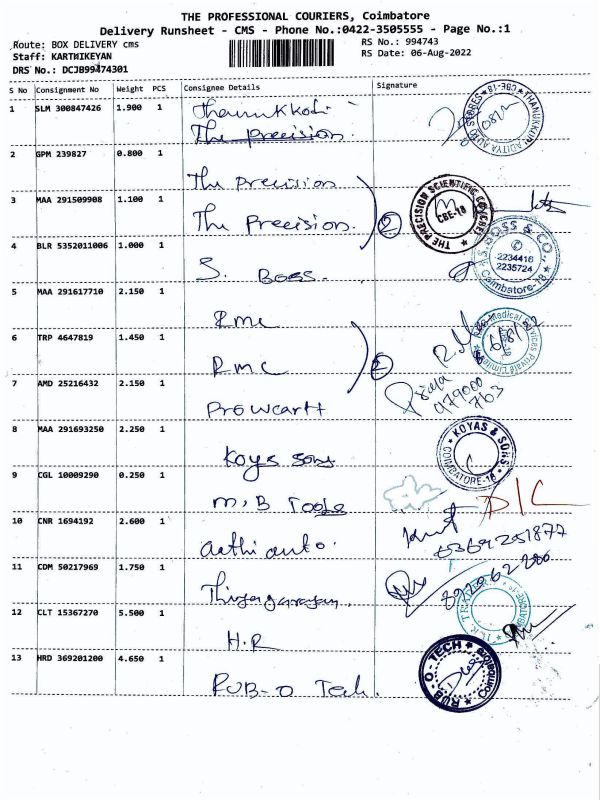 THE PROFESSIONAL COURIERS, Coimbatore
Delivery Runsheet - CMS - Phone No.:0422-3505555 - Page No.:1
Route: BOX DELIVERY cms
RS No.: 994743
Staff: KARTHIKEYAN
RS Date: 06-Aug-2022
DRS No.: DCJB99474301
S No Consignment No Weight PCS Consignee Details Signature
1 SLM 300847426 1.900 1
The precision.
2 GPM 239827 0.800 1
The Precision
3 MAA 291509908 1.100 1
The Precision.
2
THE PRECISION SCIENTIFIC CO (CBE)
CBE-18
4 BLR 5352011006 1.000 1
S. BOSS
S. BOSS & CO.
2234416
2235724
Coimbatore-18
5 MAA 291617710 2.150 1
RMC
6 TRP 4647819 1.450 1
RMC
2
7 AMD 25216432 2.150 1
Prowcartt
8 MAA 291693250 2.250 1
Koyas sons
KOYAS & SONS
COIMBATORE-18
9 CGL 10009290 0.250 1
M.B Tools
D/C
10 CNR 1694192 2.600 1
aathi auto.
11 CDM 50217969 1.750 1
Thiyagarayan.
12 CLT 15367270 5.500 1
H.R
13 HRD 369201200 4.650 1
RUB-O Tech.
RUB-O-TECH